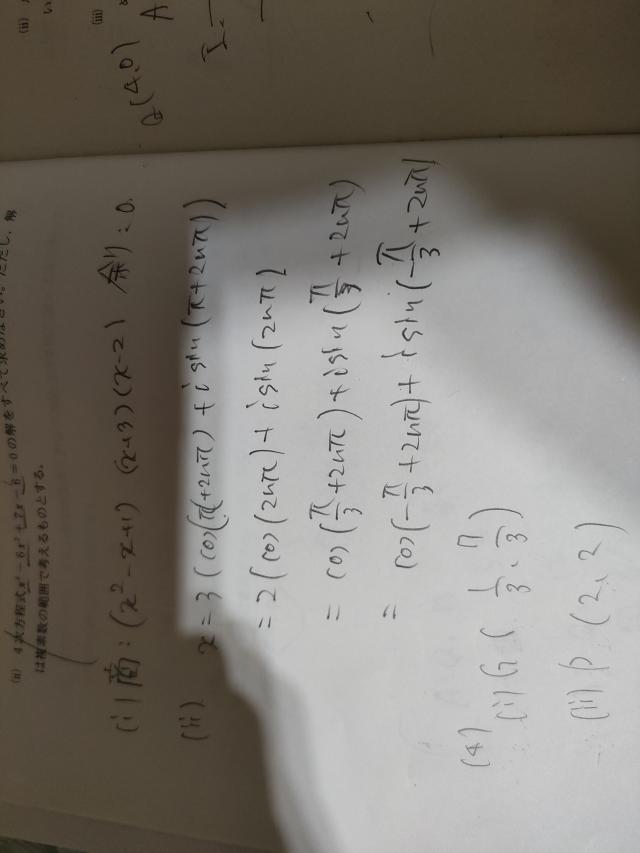 (ii) 4次方程式x⁴-6x²+7x-6=0の解をすべて求めなさい。ただし、解
は複素数の範囲で考えるものとする。
(i) 商:(x²-x+1)(x+3)(x-2) 余り:0.
(ii) x=3(cos(π+2nπ)+isin(π+2nπ))
=2(cos(2nπ)+isin(2nπ)
=cos(π/3+2nπ)+isin(π/3+2nπ)
=cos(-π/3+2nπ)+isin(-π/3+2nπ)
(4)
(i) G(1/3、7/3)
(ii) P(2、2)
(ii)
(iii)
A
(4,0)